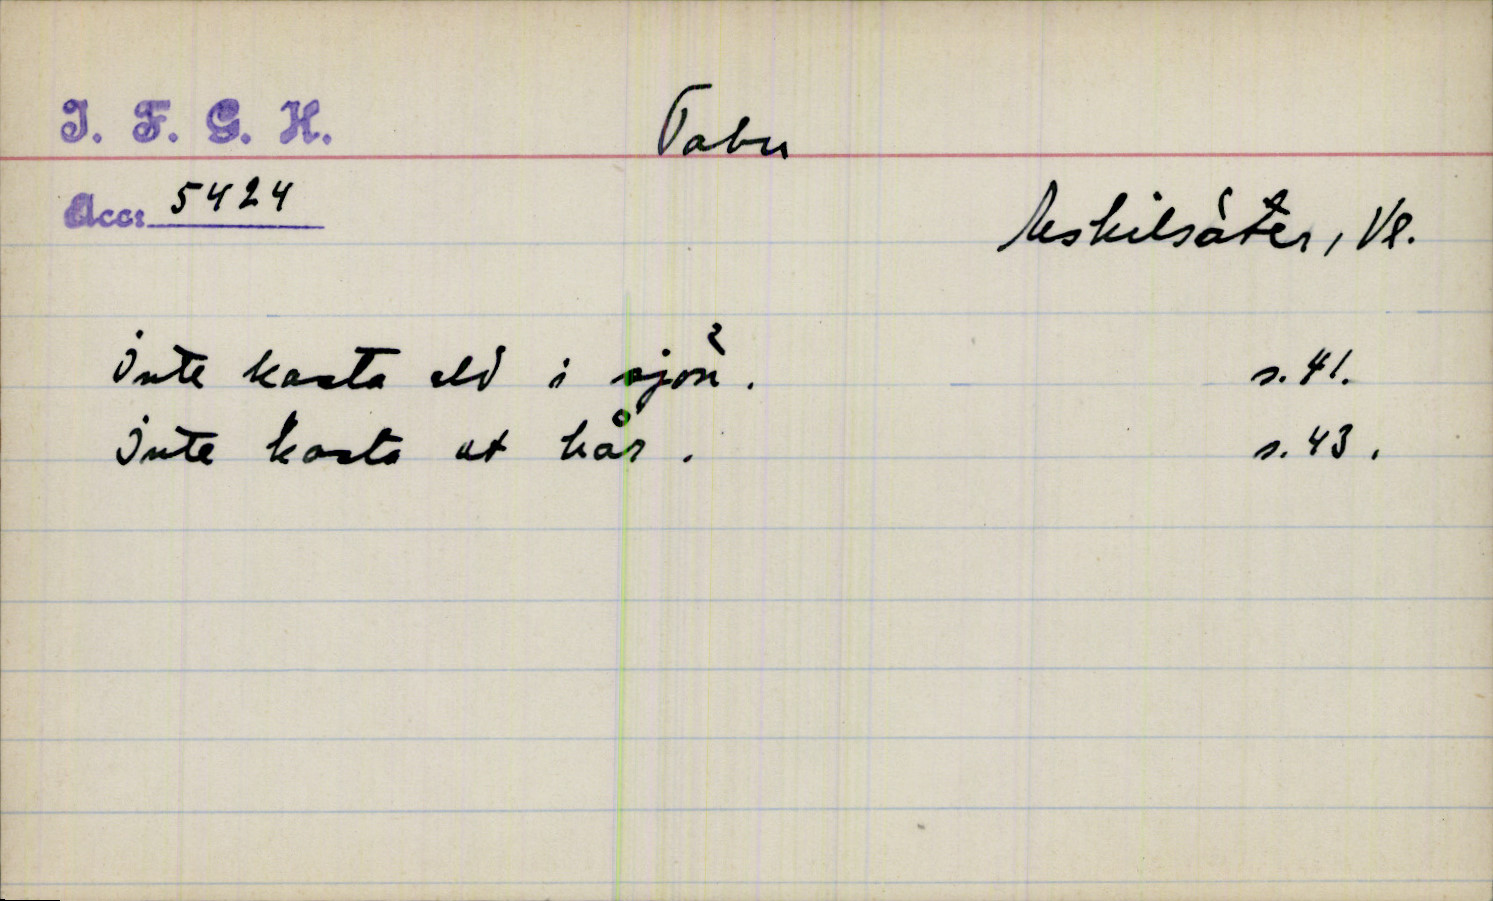 I. F. G. H.
Tabu
Accr 5424
Eskilsäter, Vl.
Inte kasta eld i sjön. s. 41.
Inte kasta ut hår. s. 43.